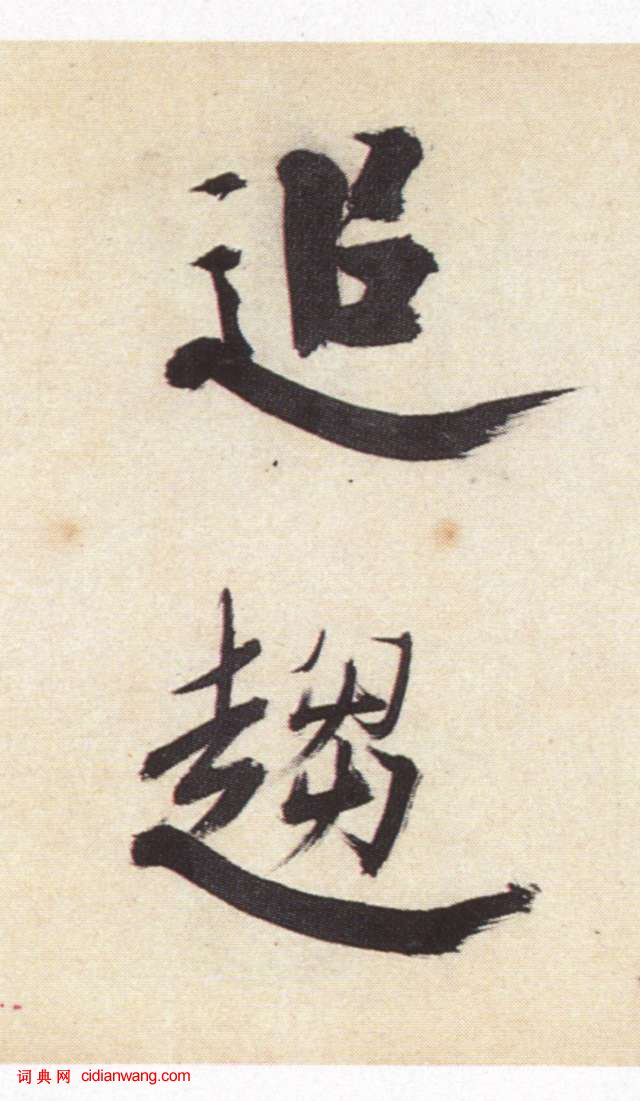 追
趨
词典网 cidianwang.com